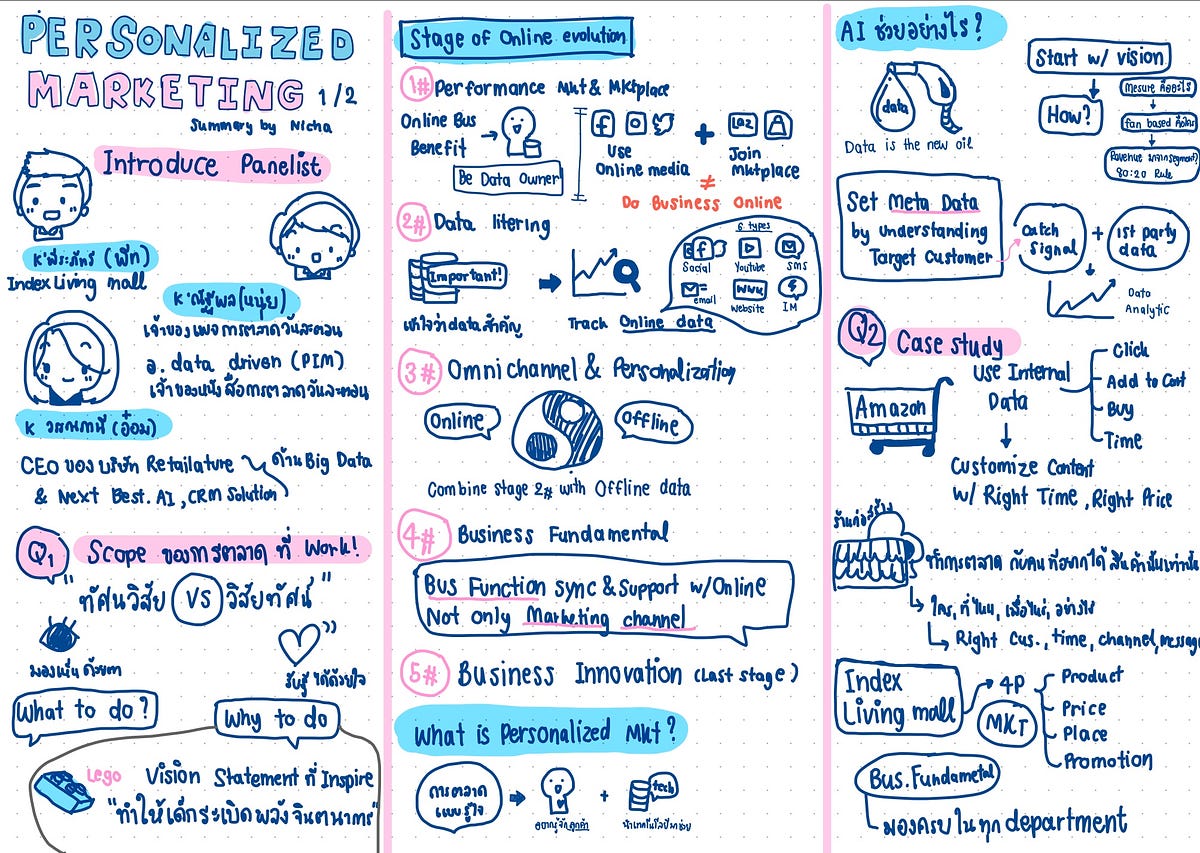 PERSONALIZED
MARKETING 1/2
Summary by Nicha
Introduce Panelist
K'พีระภัทร์ (พีท)
Index Living mall
K'ณัฐพล (หนุ่ย)
เจ้าของเพจการตลาดวันละตอน
อ. data driven (PIM)
เจ้าของหนังสือการตลาดวันละตอน
(อ๋อม)
CEO ของบริษัท Retailature ด้าน Big Data
& Next Best. AI, CRM Solution
Q1 Scope ของการตลาด ที่ Work!
"ทัศนวิสัย VS วิสัยทัศน์"
มองเห็นด้วยตา
รับรู้ได้ด้วยใจ
What to do?
Why to do
Lego Vision Statement ที่ Inspire
"ทำให้เด็กระเบิดพลังจินตนาการ"
Stage of Online evolution
1# Performance Mkt & Mktplace
Online Bus
Benefit
Be Data Owner
f
Use
Online media
+
LAZ
Join
Mktplace
≠
Do Business Online
2# Data litering
Important!
เข้าใจว่า data สำคัญ
Track Online data
6 types
Social
Youtube
SMS
email
www
website
IM
3# Omnichannel & Personalization
Online
Offline
Combine stage 2# with Offline data
4# Business Fundamental
Bus Function sync & Support w/Online
Not only Marketing channel
5# Business Innovation (Last stage)
What is Personalized Mkt?
การตลาด
แบบรู้ใจ
+
tech
อยากรู้จักลูกค้า
นำเทคโนโลยีมาช่วย
AI ช่วยอย่างไร?
data
Data is the new oil
Start w/ vision
How?
Mesure คืออะไร
fan based คือใคร
Revenue มาจาก segment?
80:20 Rule
Set Meta Data
by understanding
Target customer
Catch
Signal
+
1st party
data
Data
Analytic
Q2 Case study
Amazon
Use Internal
Data
Click
Add to Cart
Buy
Time
Customize Content
w/ Right Time, Right Price
ร้านก่อสร้าง
ทำการตลาด กับคนที่อยากได้สินค้านั้นเท่านั้น
ใคร, ที่ไหน, เมื่อไหร่, อย่างไร
Right Cus., time, channel, message
Index
Living mall
4P
MKT
Product
Price
Place
Promotion
Bus. Fundametal
มองครบในทุก department